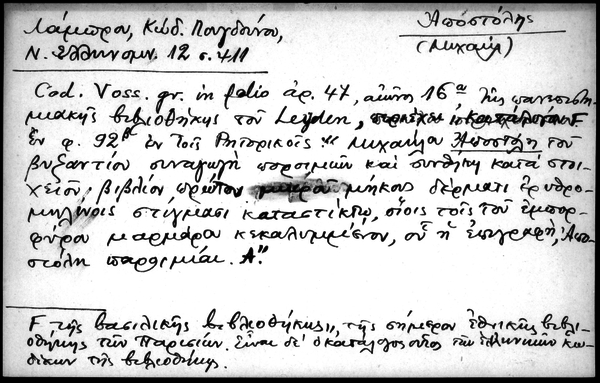 Λάμπρου, Κώδ. Λουγδούνου,
Ἀποστόλης
(Μιχαήλ)
Ν. Ἑλληνομν. 12 σ. 411
Cod. Voss. gr. in folio ἀρ. 47, αἰῶνος 16ου, τῆς πανεπιστη-
μιακῆς βιβλιοθήκης τοῦ Leyden, περιέχει F
ἐν φ. 92β ἐν τοῖς Ῥητορικοῖς "Μιχαήλου Ἀποστόλη τοῦ
βυζαντίου συναγωγὴ παροιμιῶν καὶ συνθήκη κατὰ στοι-
χεῖον· βιβλίον πρῶτον μικροῦ μήκους δέρματι ἐρυθρο-
μηλίνοις στίγμασι καταστίκτῳ, οἵοις τοῖς τοῦ ἐμπορ-
φύρου μαρμάρου κεκαλυμμένον, οὗ ἡ ἐπιγραφή, Ἀπο-
στόλη παροιμίαι. Α".
F τῆς βασιλικῆς βιβλιοθήκης", τῆς σήμερον ἐθνικῆς βιβλι-
οθήκης τῶν Παρισίων. Εἶναι δὲ ὁ κατάλογος οὗτος τῶν ἑλληνικῶν κω-
δίκων τῆς βιβλιοθήκης.